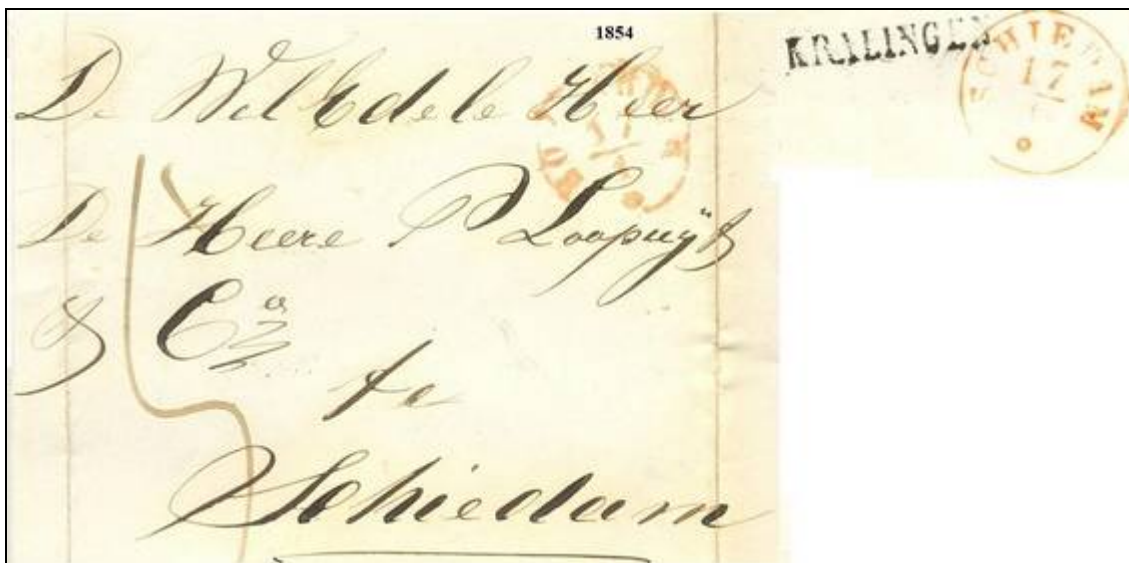 1854
KRALINGEN
SCHIEDAM
17
De Wel Edele Heer
De Heere P Loopuyt
& Co
te
Schiedam
5